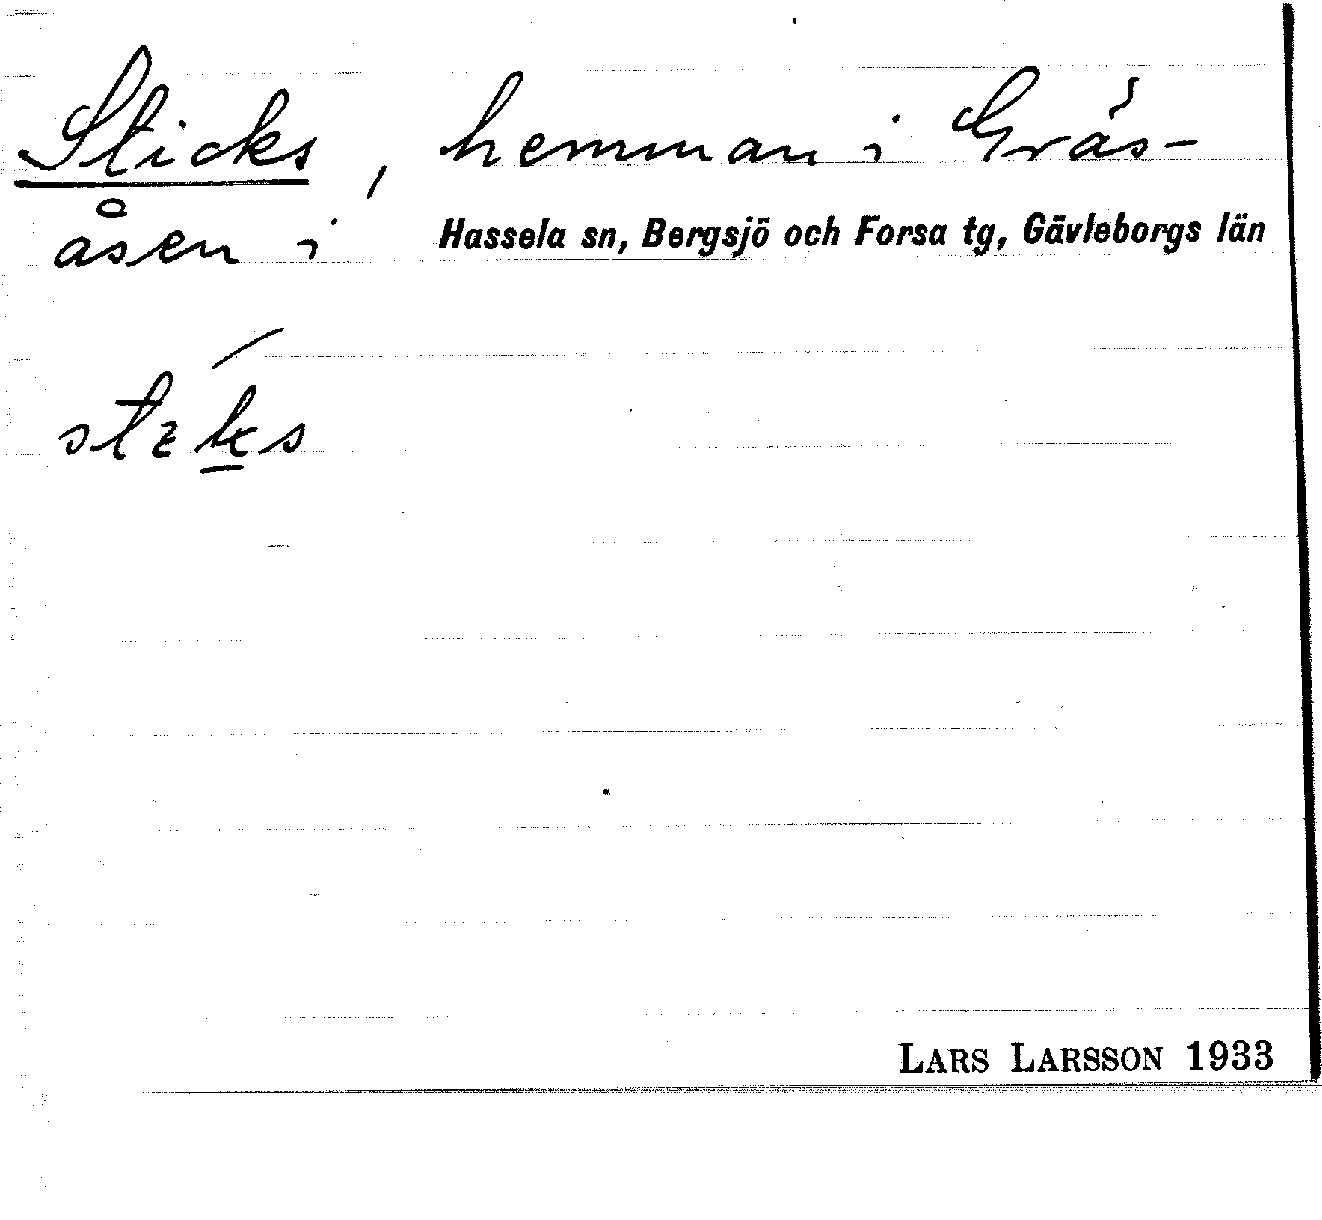 Sticks, hemman i Gräs-
åsen i Hassela sn, Bergsjö och Forsa tg, Gävleborgs län
LARS LARSSON 1933